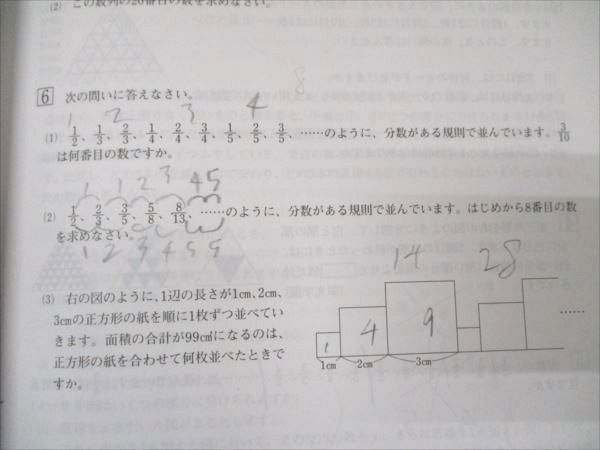 (2) この数列の20番目の数を求めなさい。
8
6 次の問いに答えなさい。
1 2 3 4
(1) 1/2、1/3、2/3、1/4、2/4、3/4、1/5、2/5、3/5、……のように、分数がある規則で並んでいます。3/10
は何番目の数ですか。
1 1 2 3 4 5
(2) 1/2、2/3、3/5、5/8、8/13、……のように、分数がある規則で並んでいます。はじめから8番目の数
を求めなさい。
1 2 3 4 5 5
14 28
(3) 右の図のように、1辺の長さが1cm、2cm、
3cmの正方形の紙を順に1枚ずつ並べてい
きます。面積の合計が99cm²になるのは、
正方形の紙を合わせて何枚並べたときで
すか。
1 4 9 ……
1cm 2cm 3cm